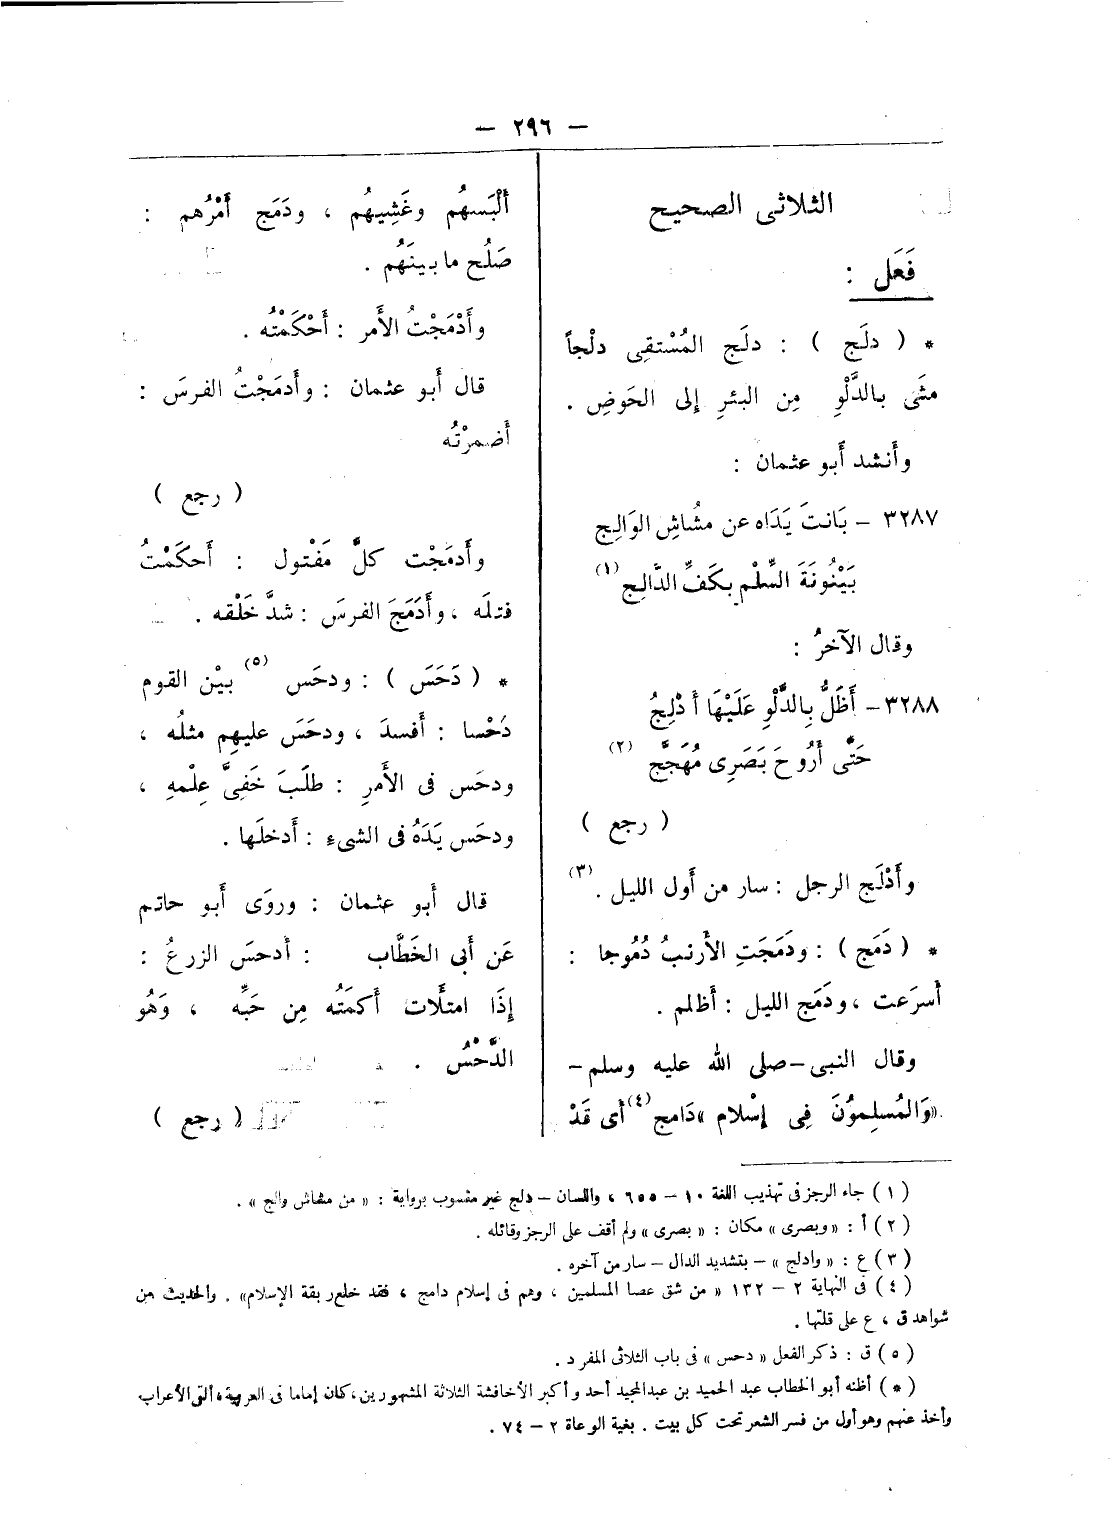 — ٢٩٦ —
الثلاثى الصحيح
فَعَل :
* ( دلَج ) : دلَج المُسْتقِى دلْجاً
مشَى بالدَّلْوِ مِن البئرِ إلى الحَوضِ .
وأَنشد أَبو عثمان :
٣٢٨٧ – بَانتَ يَدَاه عن مشُاشِ الوَالِج
بَيْنُونَةَ السِّلْم بكَفِّ الدَّالِج (١)
وقال الآخرُ :
٣٢٨٨ – أَظَلُّ بِالدَّلْوِ عَلَيْهَا أَدْلِجُ
حَتَّى أَرُوحَ بَصَرِى مُهَجَّج (٢)
( رجع )
وأَدْلَج الرجل : سار من أول الليل . (٣)
* ( دَمَج ) : ودَمَجَتِ الأَرنبُ دُمُوجا :
أَسرَعت ، ودَمَج الليل : أَظلم .
وقال النبى – صلى الله عليه وسلم –
«وَالمُسلِموُنَ فِى إِسْلام دَامج» (٤) أى قَدْ
أَلْبَسهُم وغَشِيهُم ، ودَمَج أَمْرُهم :
صَلُح ما بينَهُم .
وأَدْمَجْتُ الأَمر : أَحْكَمْتُه .
قال أَبو عثمان : وأَدمَجْتُ الفرسَ :
أَضمرْتُه
( رجع )
وأَدمَجْت كلَّ مَفْتول : أَحكَمْتُ
فتلَه ، وأَدَمَجَ الفرسَ : شدَّ خَلْقه .
* ( دَحَسَ ) : ودحَس (٥) بيْن القوم
دَحْسا : أَفسدَ ، ودحَسَ عليهِم مثلُه ،
ودحَس فى الأَمرِ : طلَبَ خَفِىَّ عِلْمهِ ،
ودحَس يَدَهُ فى الشىءِ : أَدخلَها .
قال أَبو عثمان : وروَى أَبو حاتم
عَن أَبى الخَطَّاب : أَدحسَ الزرعُ :
إِذَا امتلَأت أَكمَتُه مِن حَبِّه ، وَهُو
الدَّحْسُ .
( رجع )
(١) جاء الرجز فى تهذيب اللغة ١٠ – ٦٥٥ ، واللسان – دلج غير منسوب برواية : « من مشاش والج » .
(٢) أ : « وبصرى » مكان : « بصرى » ولم أقف على الرجز وقائله .
(٣) ع : « وادلج » – بتشديد الدال – سار من آخره .
(٤) فى النهاية ٢ – ١٣٢ « من شق عصا المسلمين ، وهم فى إسلام دامج ، فقد خلع ربقة الإسلام» . والحديث من
شواهد ق ، ع على قلتها .
(٥) ق : ذكر الفعل « دحس » فى باب الثلاثى المفرد .
(*) أظنه أبو الخطاب عبد الحميد بن عبدالمجيد أحد وأكبر الأخافشة الثلاثة المشهورين، كان إماما فى العربية، ألقى الأعراب
وأخذ عنهم وهو أول من فسر الشعر تحت كل بيت . بغية الوعاة ٢ – ٧٤ .